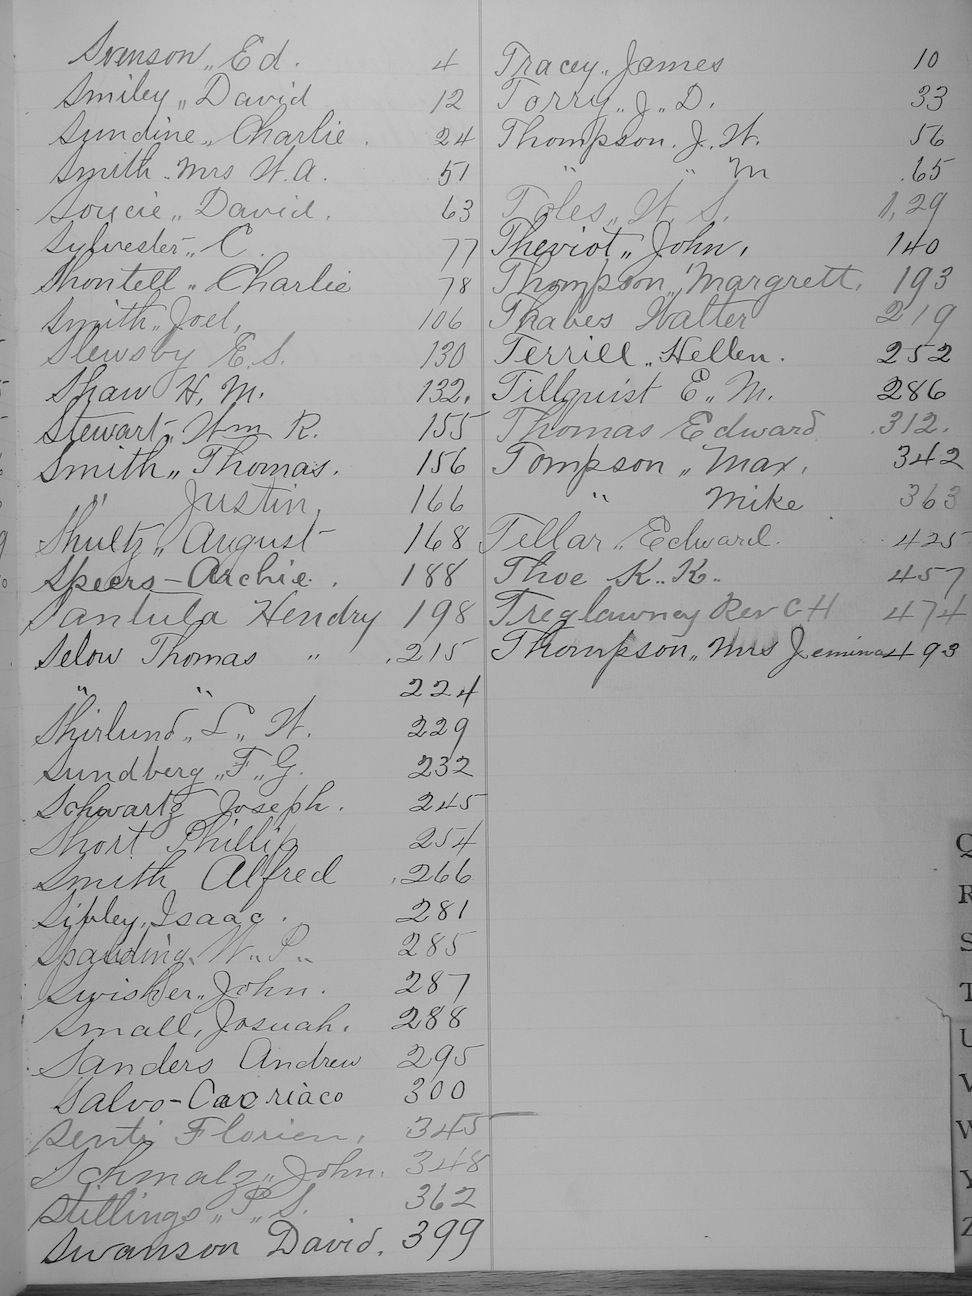 Svenson ,, Ed. 4
Smiley ,, David 12
Sundine ,, Charlie. 24
Smith. Mrs W. A. 51
Soucie ,, David. 63
Sylvester ,, C. 77
Shontell ,, Charlie 78
Smith ,, Joel, 106
Slewsby E. S. 130
Shaw H. M. 132.
Stewart ,, Wm R. 155
Smith ,, Thomas. 156
" Justin, 166
Shultz ,, August 168
Speers - Archie. 188
Santula Hendry 198
Selow Thomas " 215
" " 224
Shirlund ,, L ,, W. 229
Sundberg ,, F ,, G. 232
Schwartz Joseph. 245
Short Phillip 254
Smith Alfred 266
Sibley, Isaac. 281
Spaulding W. P. 285
Swisher ,, John. 287
Small, Josuah. 288
Sanders Andrew 295
Salvo - Caoriaco 300
Senti Florien, 345
Schmalz ,, John. 348
Stillings ,, P ,, S. 362
Swanson David. 399
Tracey ,, James 10
Torry ,, J ,, D. 33
Thompson. J. W. 56
" " M 65
Toles ,, W. S. 129
Theviot ,, John, 140
Thompson ,, Margrett. 193
Thabes Walter 219
Terrill ,, Hellen. 252
Tillquist E ,, M. 286
Thomas Edward 312.
Tompson ,, Max, 342
" Mike 363
Tellar ,, Edward. 425
Thoe K. K. 457
Treglawney Rev C H 474
Thompson ,, Mrs Jemima 493
Q
R
S
T
U
V
W
Y
Z